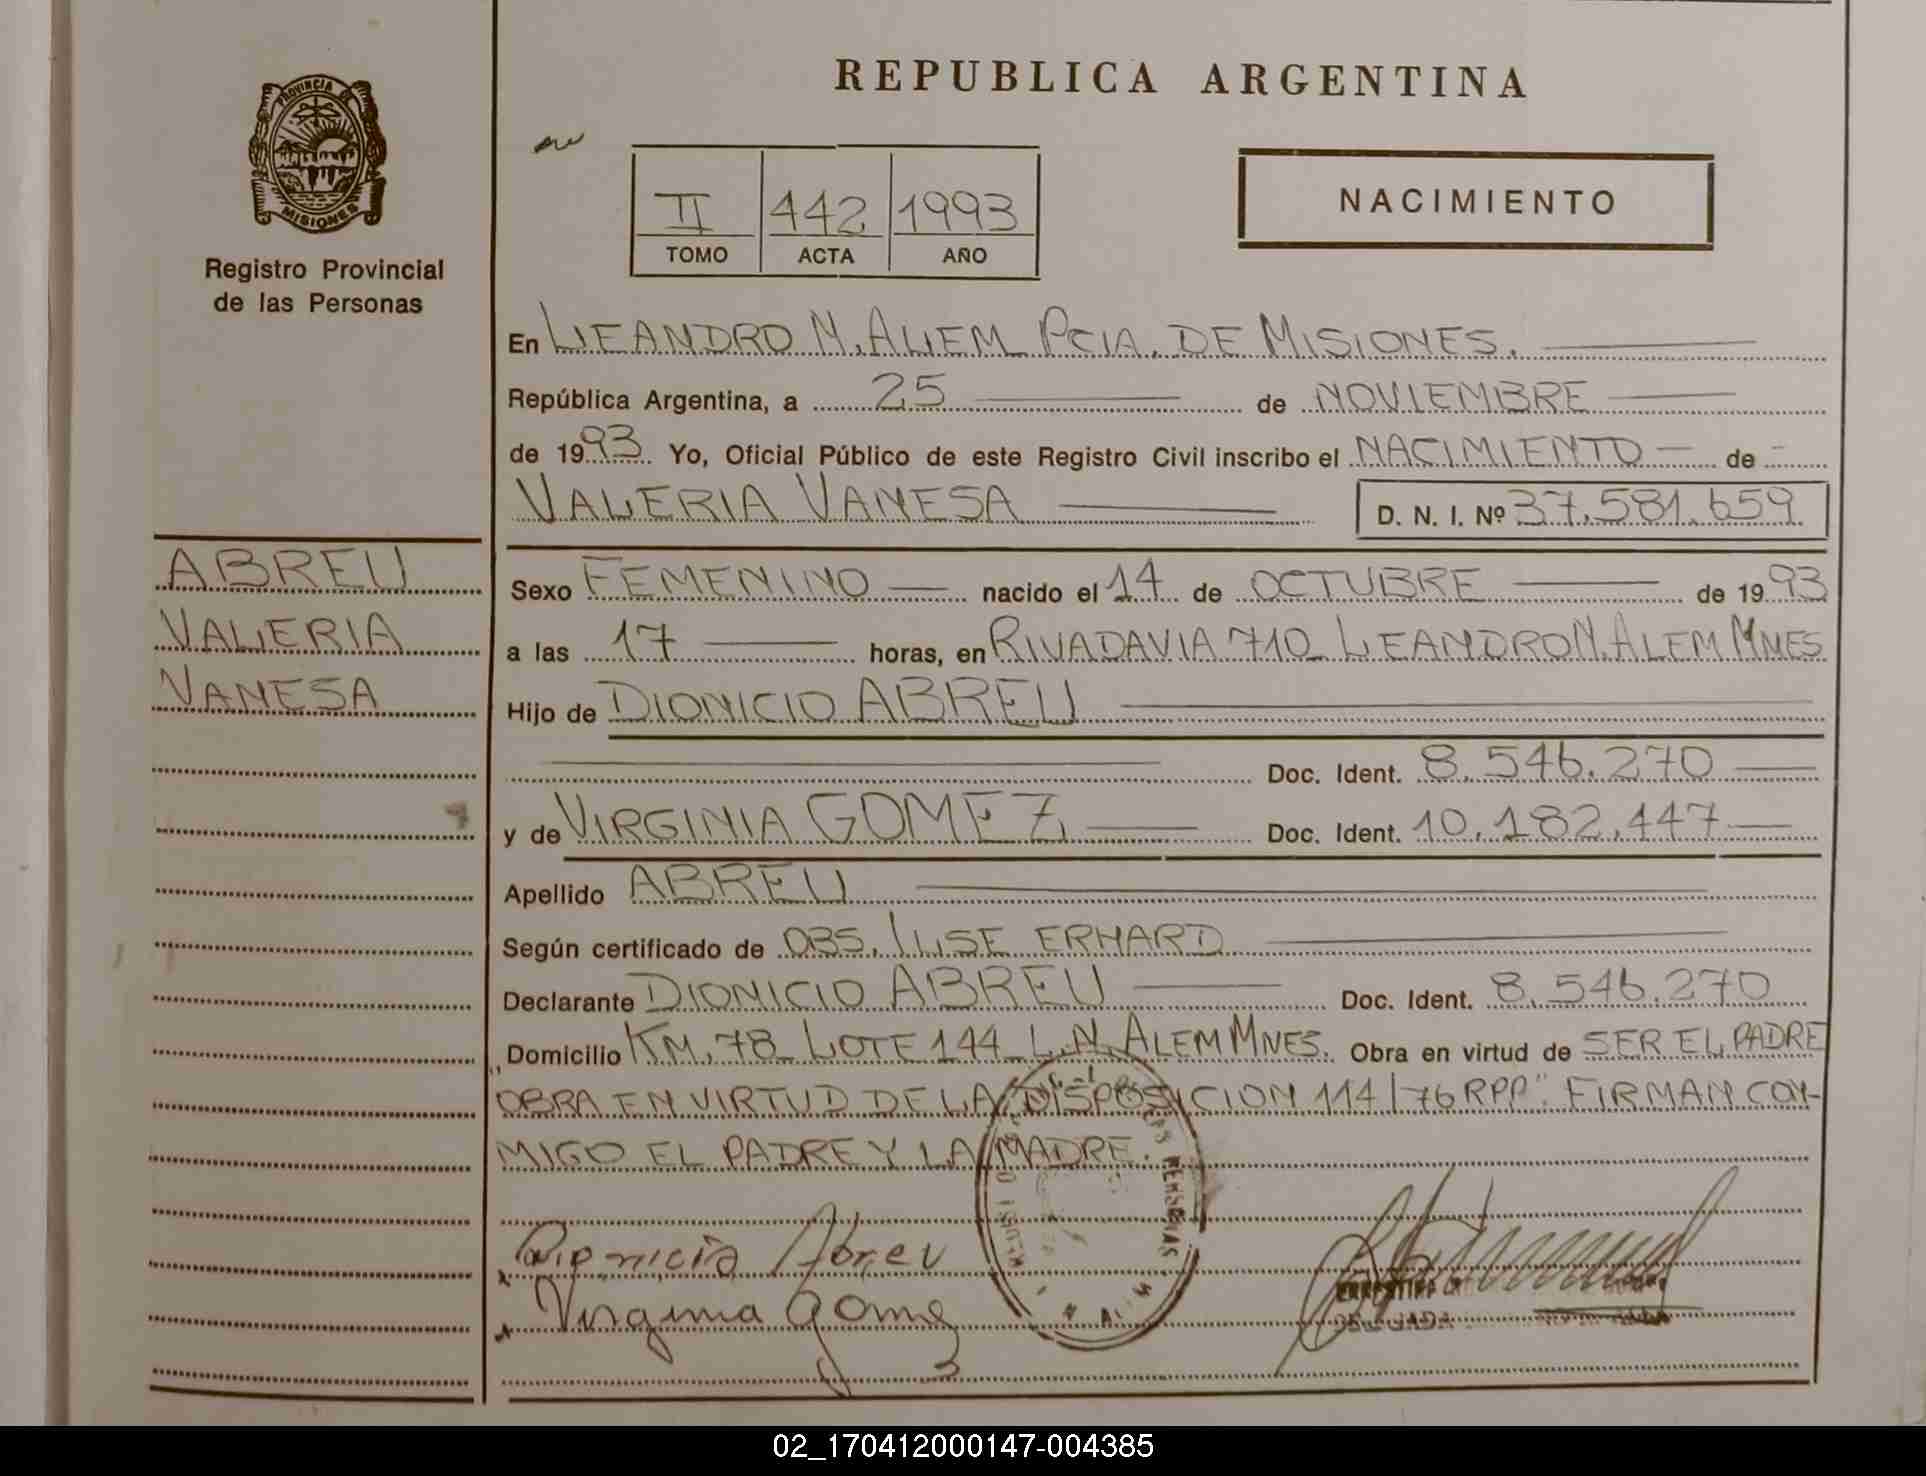 PROVINCIA DE
MISIONES
Registro Provincial
de las Personas
ABREU
VALERIA
VANESA
REPUBLICA ARGENTINA
II 442 1993
TOMO ACTA AÑO
NACIMIENTO
En LEANDRO N. ALEM PCIA. DE MISIONES.
República Argentina, a 25 de NOVIEMBRE
de 1993 Yo, Oficial Público de este Registro Civil inscribo el NACIMIENTO de
VALERIA VANESA D. N. I. Nº 37.581.659
Sexo FEMENINO nacido el 14 de OCTUBRE de 1993
a las 17 horas, en RIVADAVIA 710_ LEANDRO N. ALEM MNES
Hijo de DIONICIO ABREU
Doc. Ident. 8.546.270
y de VIRGINIA GOMEZ Doc. Ident. 10.182.447
Apellido ABREU
Según certificado de OBS. ILSE ERHARD
Declarante DIONICIO ABREU Doc. Ident. 8.546.270
Domicilio KM. 78_ LOTE 144_ L.N. ALEM MNES. Obra en virtud de SER EL PADRE
"OBRA EN VIRTUD DE LA DISPOSICION 114/76 RPP". FIRMAN CON-
MIGO EL PADRE Y LA MADRE.
Dionicio Abreu
Virginia Gomez
02_170412000147-004385